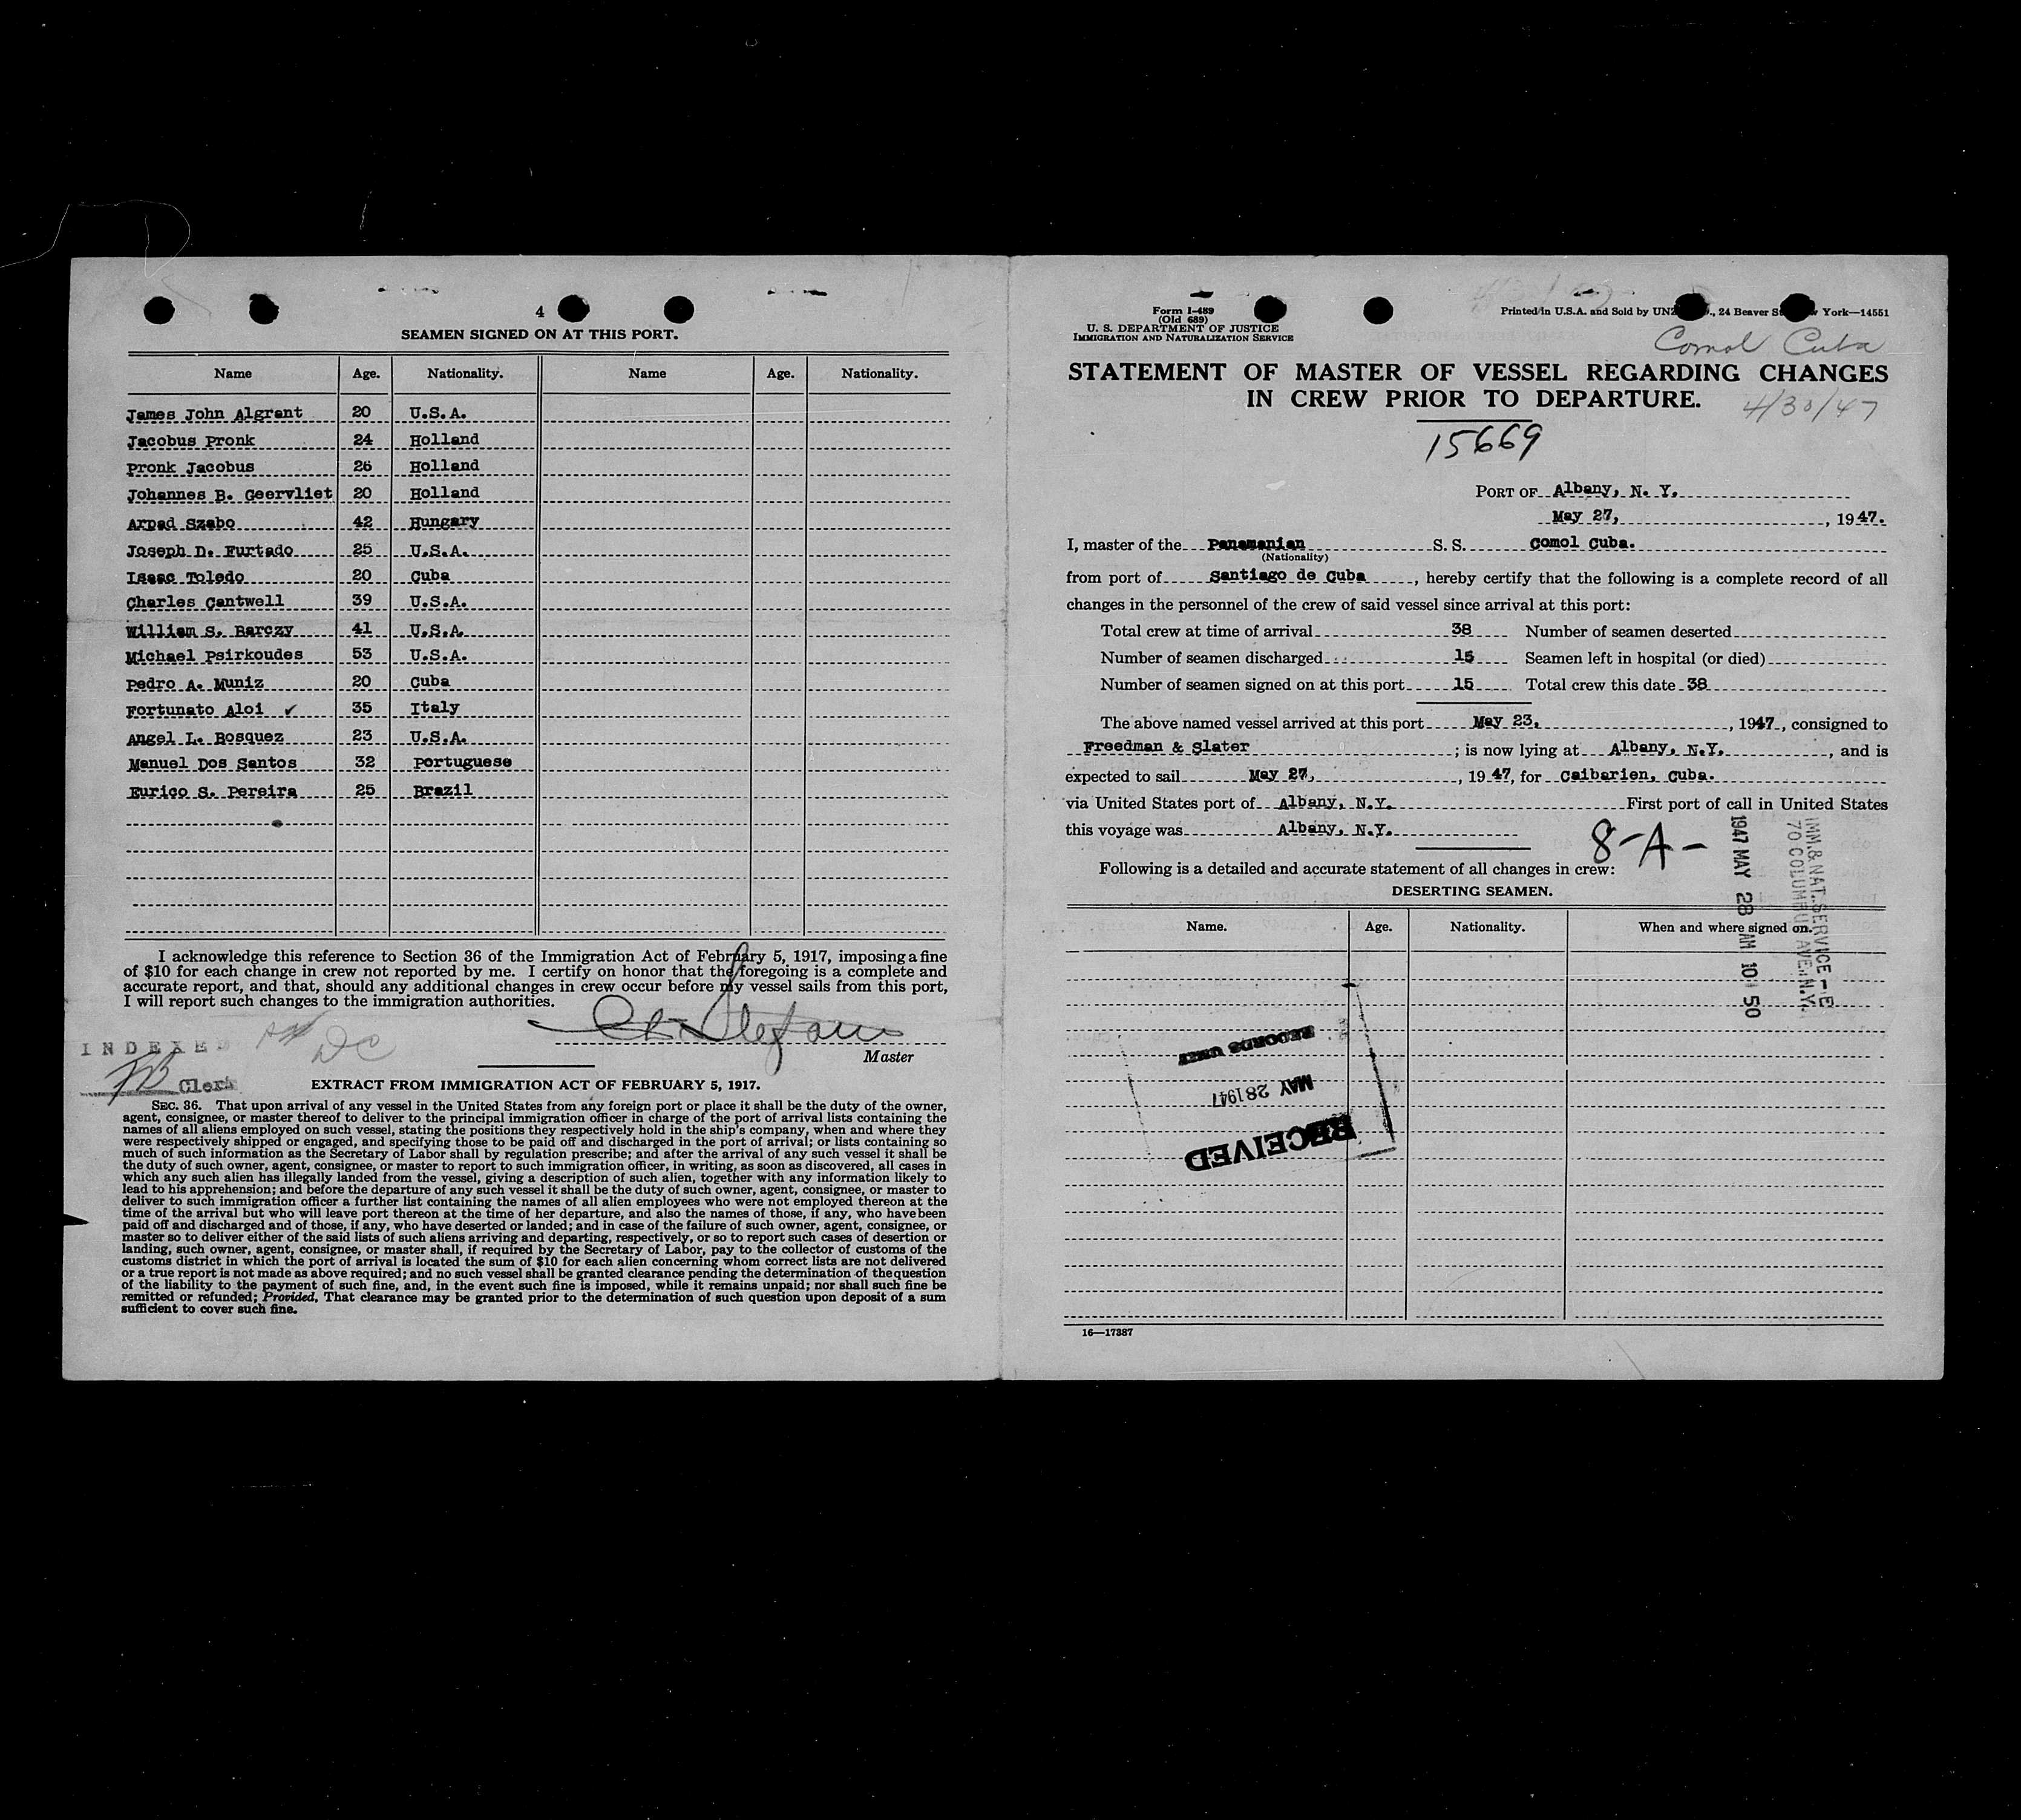 4
SEAMEN SIGNED ON AT THIS PORT.
Name Age. Nationality. Name Age. Nationality.
James John Algrant 20 U.S.A.
Jacobus Pronk 24 Holland
Pronk Jacobus 26 Holland
Johannes B. Geervliet 20 Holland
Arpad Szabo 42 Hungary
Joseph D. Furtado 25 U.S.A.
Isaac Toledo 20 Cuba
Charles Cantwell 39 U.S.A.
William S. Barczy 41 U.S.A.
Michael Psirkoudes 53 U.S.A.
Pedro A. Muniz 20 Cuba
Fortunato Aloi ✓ 35 Italy
Angel L. Bosquez 23 U.S.A.
Manuel Dos Santos 32 Portuguese
Eurico S. Pereira 25 Brazil
I acknowledge this reference to Section 36 of the Immigration Act of February 5, 1917, imposing a fine
of $10 for each change in crew not reported by me. I certify on honor that the foregoing is a complete and
accurate report, and that, should any additional changes in crew occur before my vessel sails from this port,
I will report such changes to the immigration authorities.
Master
INDEXED
DC
Clerk
EXTRACT FROM IMMIGRATION ACT OF FEBRUARY 5, 1917.
SEC. 36. That upon arrival of any vessel in the United States from any foreign port or place it shall be the duty of the owner,
agent, consignee, or master thereof to deliver to the principal immigration officer in charge of the port of arrival lists containing the
names of all aliens employed on such vessel, stating the positions they respectively hold in the ship's company, when and where they
were respectively shipped or engaged, and specifying those to be paid off and discharged in the port of arrival; or lists containing so
much of such information as the Secretary of Labor shall by regulation prescribe; and after the arrival of any such vessel it shall be
the duty of such owner, agent, consignee, or master to report to such immigration officer, in writing, as soon as discovered, all cases in
which any such alien has illegally landed from the vessel, giving a description of such alien, together with any information likely to
lead to his apprehension; and before the departure of any such vessel it shall be the duty of such owner, agent, consignee, or master to
deliver to such immigration officer a further list containing the names of all alien employees who were not employed thereon at the
time of the arrival but who will leave port thereon at the time of her departure, and also the names of those, if any, who have been
paid off and discharged and of those, if any, who have deserted or landed; and in case of the failure of such owner, agent, consignee, or
master so to deliver either of the said lists of such aliens arriving and departing, respectively, or so to report such cases of desertion or
landing, such owner, agent, consignee, or master shall, if required by the Secretary of Labor, pay to the collector of customs of the
customs district in which the port of arrival is located the sum of $10 for each alien concerning whom correct lists are not delivered
or a true report is not made as above required; and no such vessel shall be granted clearance pending the determination of the question
of the liability to the payment of such fine, and, in the event such fine is imposed, while it remains unpaid; nor shall such fine be
remitted or refunded; Provided, That clearance may be granted prior to the determination of such question upon deposit of a sum
sufficient to cover such fine.
Form I-489
(Old 689)
U. S. DEPARTMENT OF JUSTICE
IMMIGRATION AND NATURALIZATION SERVICE
Printed in U.S.A. and Sold by UNZ ., 24 Beaver S York—14551
Comol Cuba
STATEMENT OF MASTER OF VESSEL REGARDING CHANGES
IN CREW PRIOR TO DEPARTURE.
4/30/47
15669
PORT OF Albany, N. Y.
May 27, , 1947.
I, master of the Panamanian S. S. Comol Cuba.
(Nationality)
from port of Santiago de Cuba , hereby certify that the following is a complete record of all
changes in the personnel of the crew of said vessel since arrival at this port:
Total crew at time of arrival 38 Number of seamen deserted
Number of seamen discharged 15 Seamen left in hospital (or died)
Number of seamen signed on at this port 15 Total crew this date 38
The above named vessel arrived at this port May 23, , 1947, consigned to
Freedman & Slater ; is now lying at Albany, N.Y. , and is
expected to sail May 27, , 1947, for Caibarien, Cuba.
via United States port of Albany, N.Y. First port of call in United States
this voyage was Albany, N.Y.
8-A-
Following is a detailed and accurate statement of all changes in crew:
DESERTING SEAMEN.
Name. Age. Nationality. When and where signed on.
IMM. & NAT. SERVICE - E
70 COLUMBUS AVE. N.Y.
1947 MAY 28 AM 10 50
RECEIVED
MAY 28 1947
RECORDS UNIT
16—17387